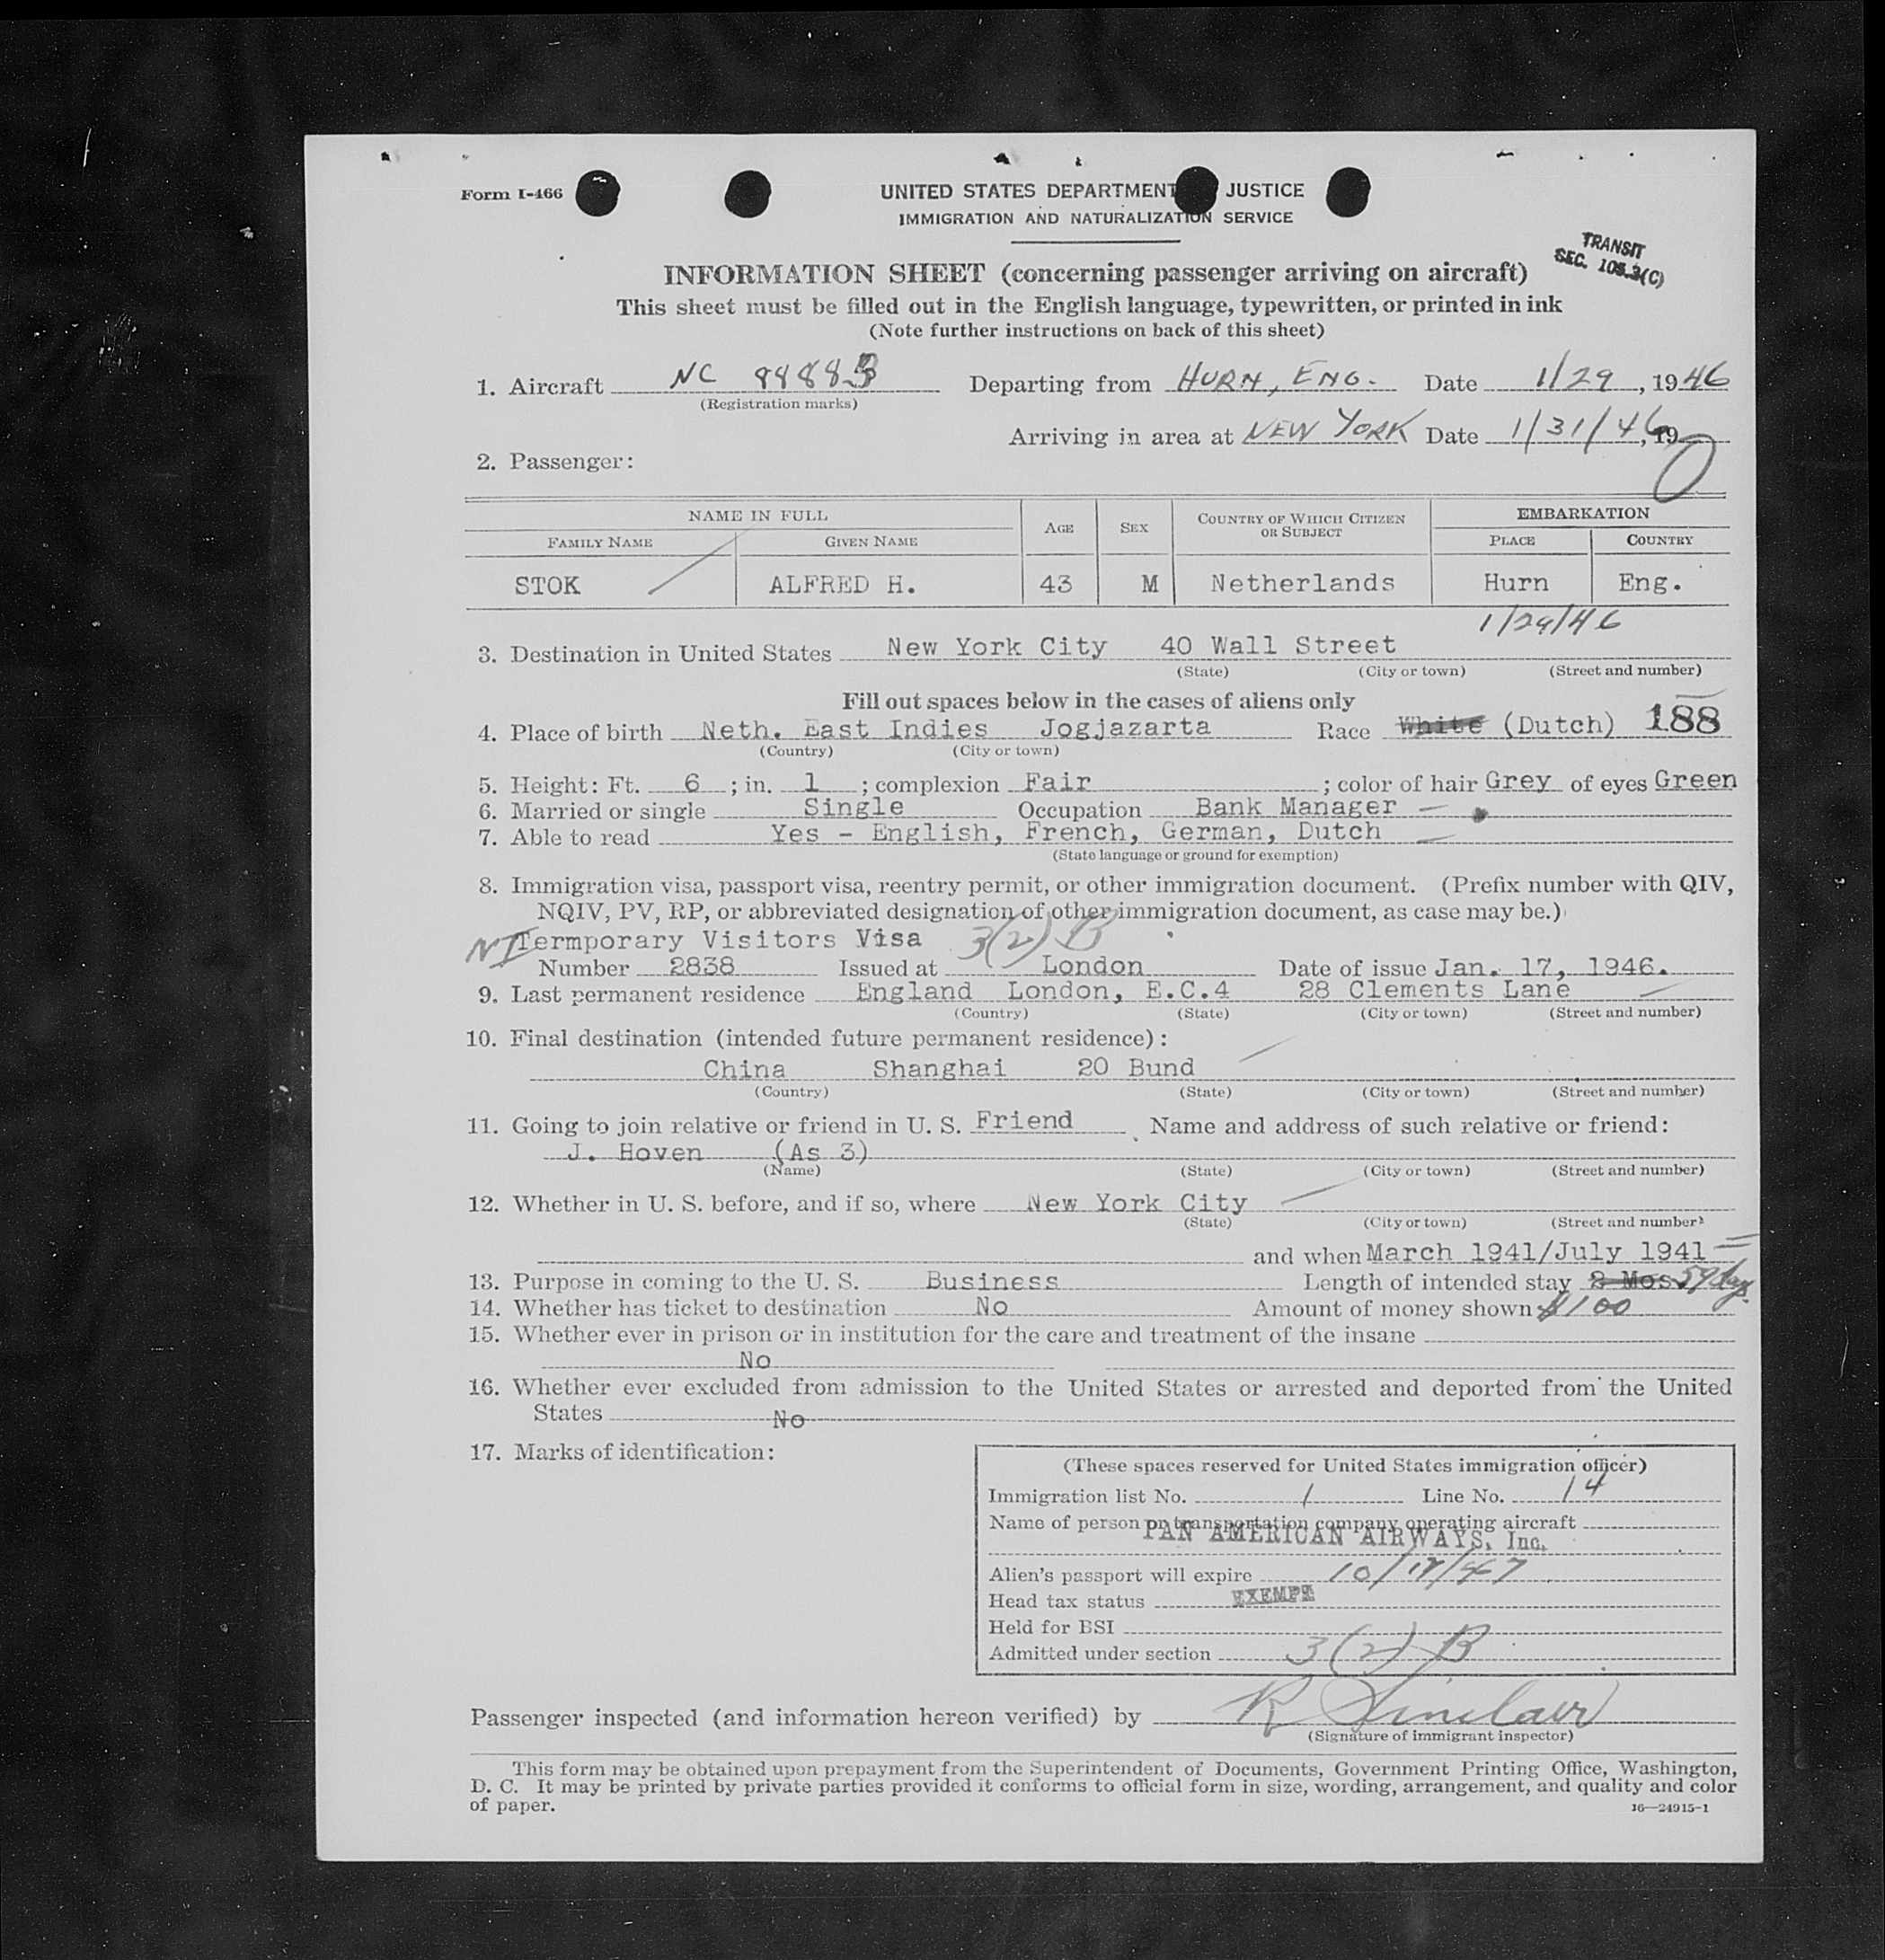 Form I-466
UNITED STATES DEPARTMENT JUSTICE
IMMIGRATION AND NATURALIZATION SERVICE
TRANSIT
SEC. 105.3(C)
INFORMATION SHEET (concerning passenger arriving on aircraft)
This sheet must be filled out in the English language, typewritten, or printed in ink
(Note further instructions on back of this sheet)
1. Aircraft NC Departing from HURN, ENG. Date 1/29, 1946
(Registration marks)
Arriving in area at NEW YORK Date 1/31/46, 19
2. Passenger:
NAME IN FULL AGE SEX COUNTRY OF WHICH CITIZEN OR SUBJECT EMBARKATION
FAMILY NAME GIVEN NAME PLACE COUNTRY
STOK ALFRED H. 43 M Netherlands Hurn Eng.
1/29/46
3. Destination in United States New York City 40 Wall Street
(State) (City or town) (Street and number)
Fill out spaces below in the cases of aliens only
4. Place of birth Neth. East Indies Jogjazarta Race White (Dutch) 188
(Country) (City or town)
5. Height: Ft. 6 ; in. 1 ; complexion Fair ; color of hair Grey of eyes Green
6. Married or single Single Occupation Bank Manager
7. Able to read Yes - English, French, German, Dutch
(State language or ground for exemption)
8. Immigration visa, passport visa, reentry permit, or other immigration document. (Prefix number with QIV,
NQIV, PV, RP, or abbreviated designation of other immigration document, as case may be.)
Termporary Visitors Visa 3(2) B
Number 2838 Issued at London Date of issue Jan. 17, 1946.
9. Last permanent residence England London, E.C.4 28 Clements Lane
(Country) (State) (City or town) (Street and number)
10. Final destination (intended future permanent residence):
China Shanghai 20 Bund
(Country) (State) (City or town) (Street and number)
11. Going to join relative or friend in U. S. Friend Name and address of such relative or friend:
J. Hoven (As 3)
(Name) (State) (City or town) (Street and number)
12. Whether in U. S. before, and if so, where New York City
(State) (City or town) (Street and number)
and when March 1941/July 1941
13. Purpose in coming to the U. S. Business Length of intended stay 2 Mos. 59 days
14. Whether has ticket to destination No Amount of money shown $100
15. Whether ever in prison or in institution for the care and treatment of the insane
No
16. Whether ever excluded from admission to the United States or arrested and deported from the United
States No
17. Marks of identification:
(These spaces reserved for United States immigration officer)
Immigration list No. 1 Line No. 14
Name of person or transportation company operating aircraft
PAN AMERICAN AIRWAYS, Inc.
Alien's passport will expire 10/17/47
Head tax status EXEMPT
Held for BSI
Admitted under section 3(2) B
Passenger inspected (and information hereon verified) by R Sinclair
(Signature of immigrant inspector)
This form may be obtained upon prepayment from the Superintendent of Documents, Government Printing Office, Washington,
D. C. It may be printed by private parties provided it conforms to official form in size, wording, arrangement, and quality and color
of paper.
16—24915-1